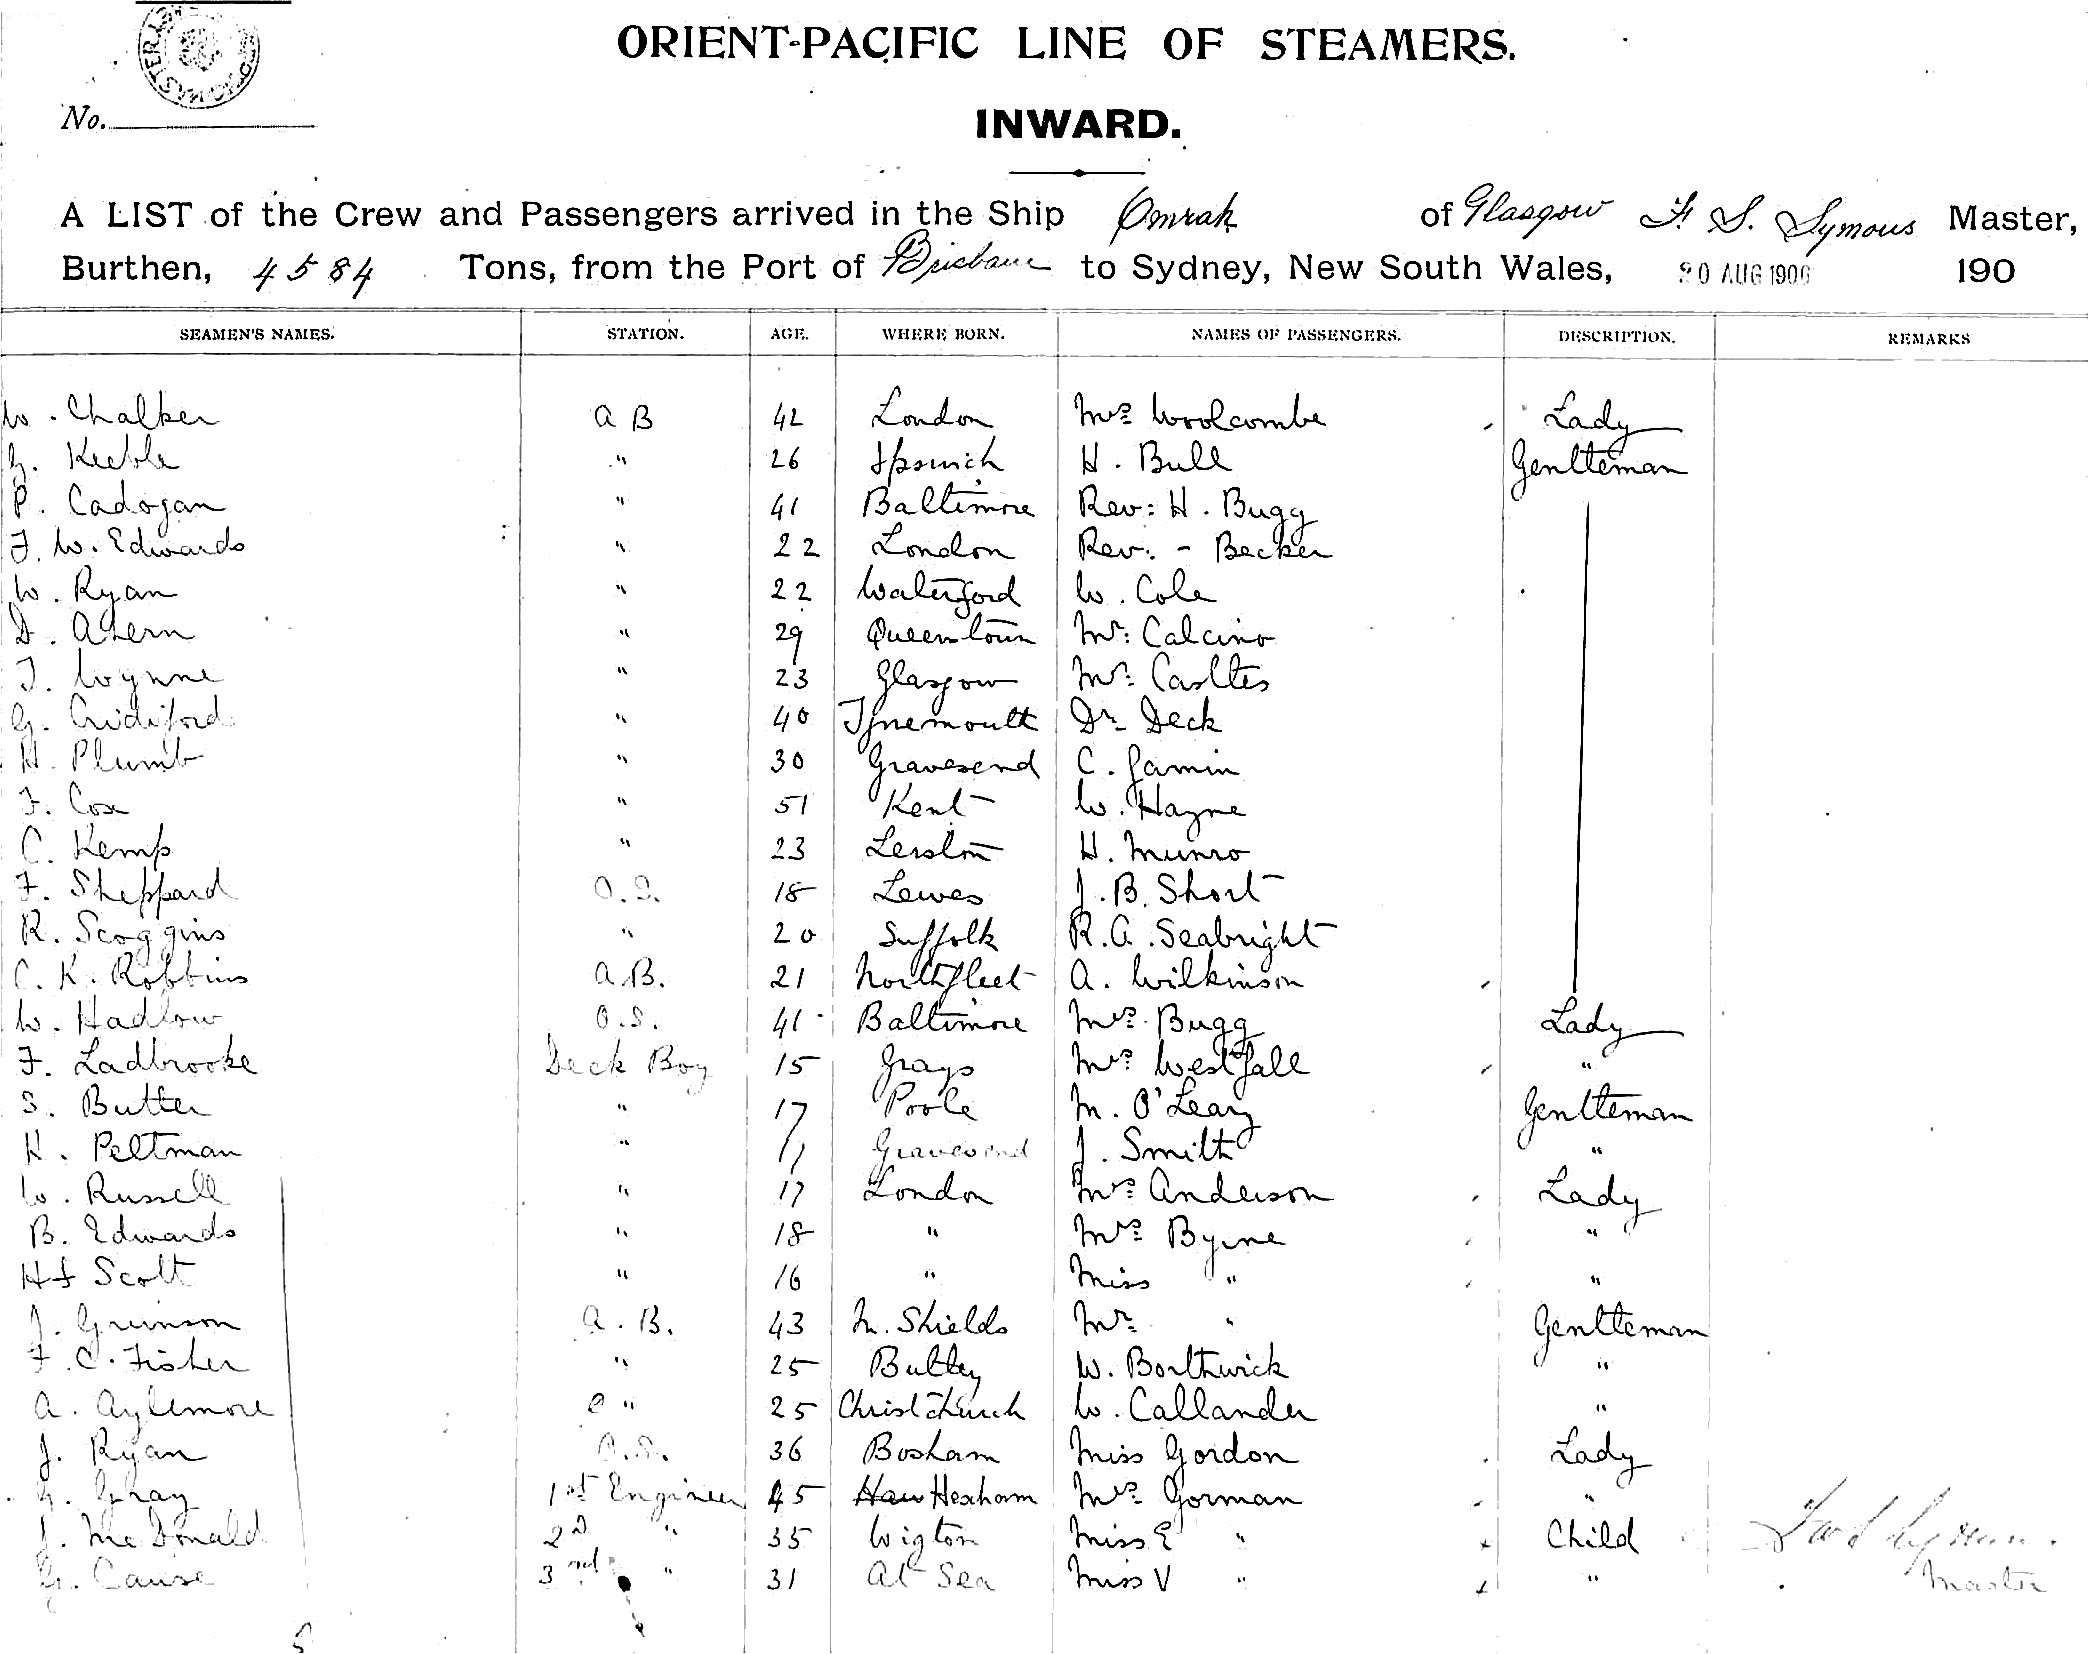 ORIENT-PACIFIC LINE OF STEAMERS.
No.
INWARD.
A LIST of the Crew and Passengers arrived in the Ship Omrah of Glasgow F. S. Symons Master,
Burthen, 4584 Tons, from the Port of Brisbane to Sydney, New South Wales, 20 AUG 1906 190
SEAMEN'S NAMES. STATION. AGE. WHERE BORN. NAMES OF PASSENGERS. DESCRIPTION. REMARKS
W. Chalker A B 42 London Mrs Woolcombe Lady
G. Keeble " 26 Ipswich H. Bull Gentleman
P. Cadogan " 41 Baltimore Rev: H. Bugg
F. W. Edwards " 22 London Rev: - Becker
W. Ryan " 22 Waterford W. Cole
D. Ahern " 29 Queenstown Mr: Calcino
T. Wynne " 23 Glasgow Mr: Castles
G. " 40 Tynemouth Dr Deck
H. Plumb " 30 Gravesend C. Jamin
F. Cox " 51 Kent W. Hayne
C. Kemp " 23 Leiston H. Munro
F. Sheppard O.S. 18 Lewes J. B. Short
R. Scoggins " 20 Suffolk R. A. Seabright
C. K. Robbins A.B. 21 Northfleet A. Wilkinson
W. Hadlow O.S. 41 Baltimore Mrs Bugg Lady
F. Ladbrooke Deck Boy 15 Grays Mrs Westfall "
S. Butter " 17 Poole M. O'Leary Gentleman
H. Peltman " 17 Gravesend J. Smith "
W. Russell " 17 London Mrs Anderson Lady
B. Edwards " 18 " Mrs Byrne "
H Scott " 16 " Miss " "
J. Grimson A. B. 43 N. Shields Mr " Gentleman
F. C. Fisher " 25 Butley W. Borthwick "
A. Aylemore " 25 Christchurch W. Callander "
J. Ryan O.S. 36 Bosham Miss Gordon Lady
G. Gray 1st Engineer 45 Haw Hexham Mrs Gorman "
J. McDonald 2nd " 35 Wigton Miss E " Child
G. Cause 3rd " 31 At Sea Miss V " "
Master